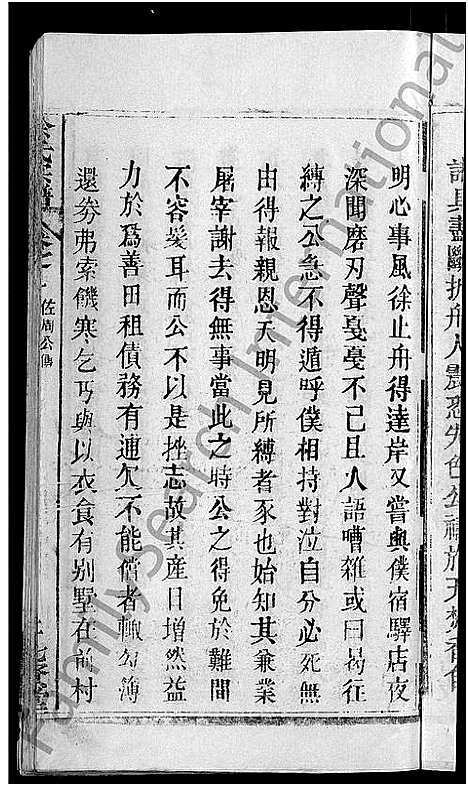 詣且盡斷折舟人
明心事風徐止舟得達岸又嘗與僕宿驛店夜
深聞磨刃聲戞戞不已且人語嘈雜或曰曷往
縛之公急不得遁呼僕相持對泣自分必死無
由得報親恩天明見所縛者豕也始知其兼業
屠宰謝去得無事當此之時公之得免於難間
不容髮耳而公不以是挫志故其產日增然益
力於爲善田租債務有逋欠不能償者輒勾簿
還券弗索饑寒乞丐與以衣食有别墅在前村
佐周公傳
FamilySearch International